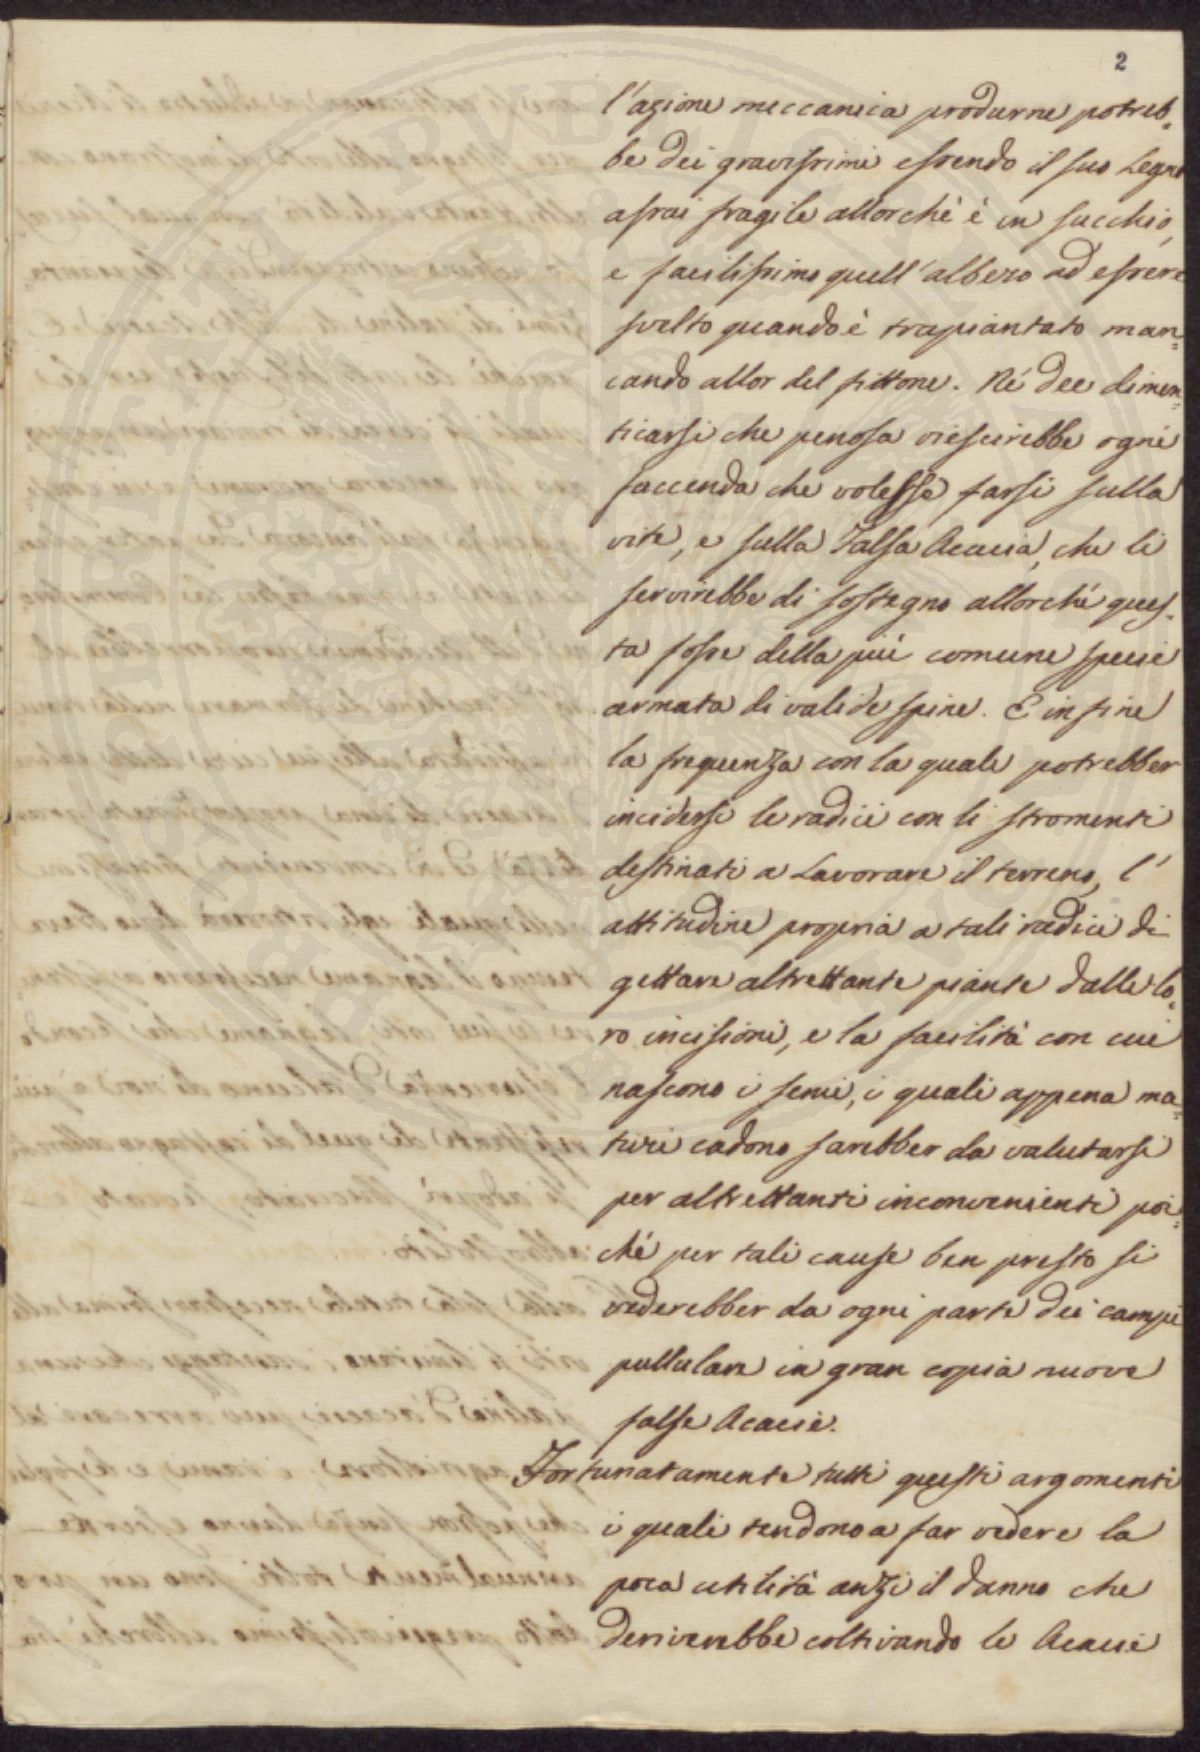 2
l'azione meccanica produrne potreb=
be dei gravissimi essendo il suo Legno
assai fragile allorchè è in succhio,
e facilissimo quell'albero ad essere
svelto quando è trapiantato man=
cando allor del fittone. Né dee dimen=
ticarsi che penosa riescirebbe ogni
faccenda che volesse farsi sulla
vite, e sulla Falsa Acacia, che li
servirebbe di sostegno allorchè ques=
ta fosse della più comune specie
armata di valide spine. E in fine
la frequenza con la quale potrebber
incidersi le radici con li stromenti
destinati a Lavorare il terreno, l'
attitudine propria a tali radici di
gettare altrettante piante dalle lo=
ro incisioni, e la facilità con cui
nascono i semi, i quali appena ma=
turi cadono sarebber da valutarsi
per altrettanti inconvenienti poi=
ché per tali cause ben presto si
vederebber da ogni parte dei campi
pullulare in gran copia nuove
false Acacie.
Fortunatamente tutti questi argomenti
i quali tendono a far vedere la
poca utilità anzi il danno che
deriverebbe coltivando le Acacie